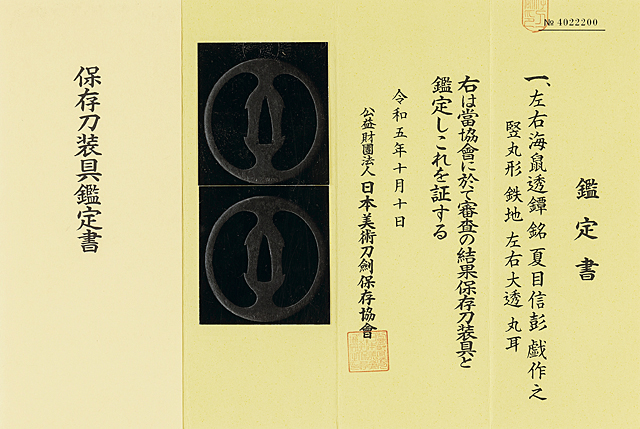 № 4022200
鑑定書
一、左右海鼠透鐔 銘 夏目信彭 戯作之
竪丸形 鉄地 左右大透 丸耳
右は當協會に於て審査の結果保存刀装具と
鑑定しこれを証する
令和五年十月十日
公益財團法人 日本美術刀劍保存協會
保存刀装具鑑定書